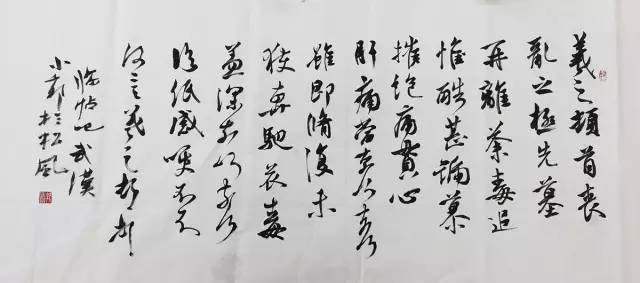 羲之頓首喪
亂之極先墓
再離荼毒追
惟酷甚號慕
摧絕痛貫心
肝痛當奈何奈何
雖即脩復未
獲奔馳哀毒
益深奈何奈何
臨紙感哽不知
何言羲之頓首
临帖武漢
小於松風